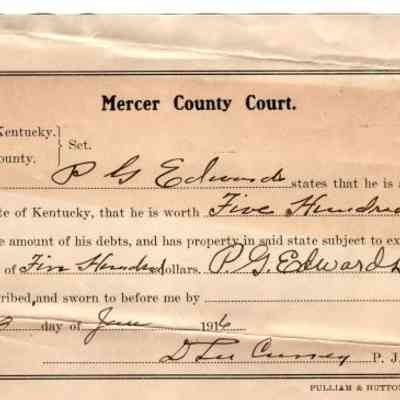 Mercer County Court.
Kentucky.
ounty. } Sct.
P G Edwards states that he is a
te of Kentucky, that he is worth Five Hundred
e amount of his debts, and has property in said state subject to ex
of Five Hundred dollars. P. G. Edwards
ribed, and sworn to before me by
day of June 1916
D Lee Currey P. J.
PULLIAM & HUTTO